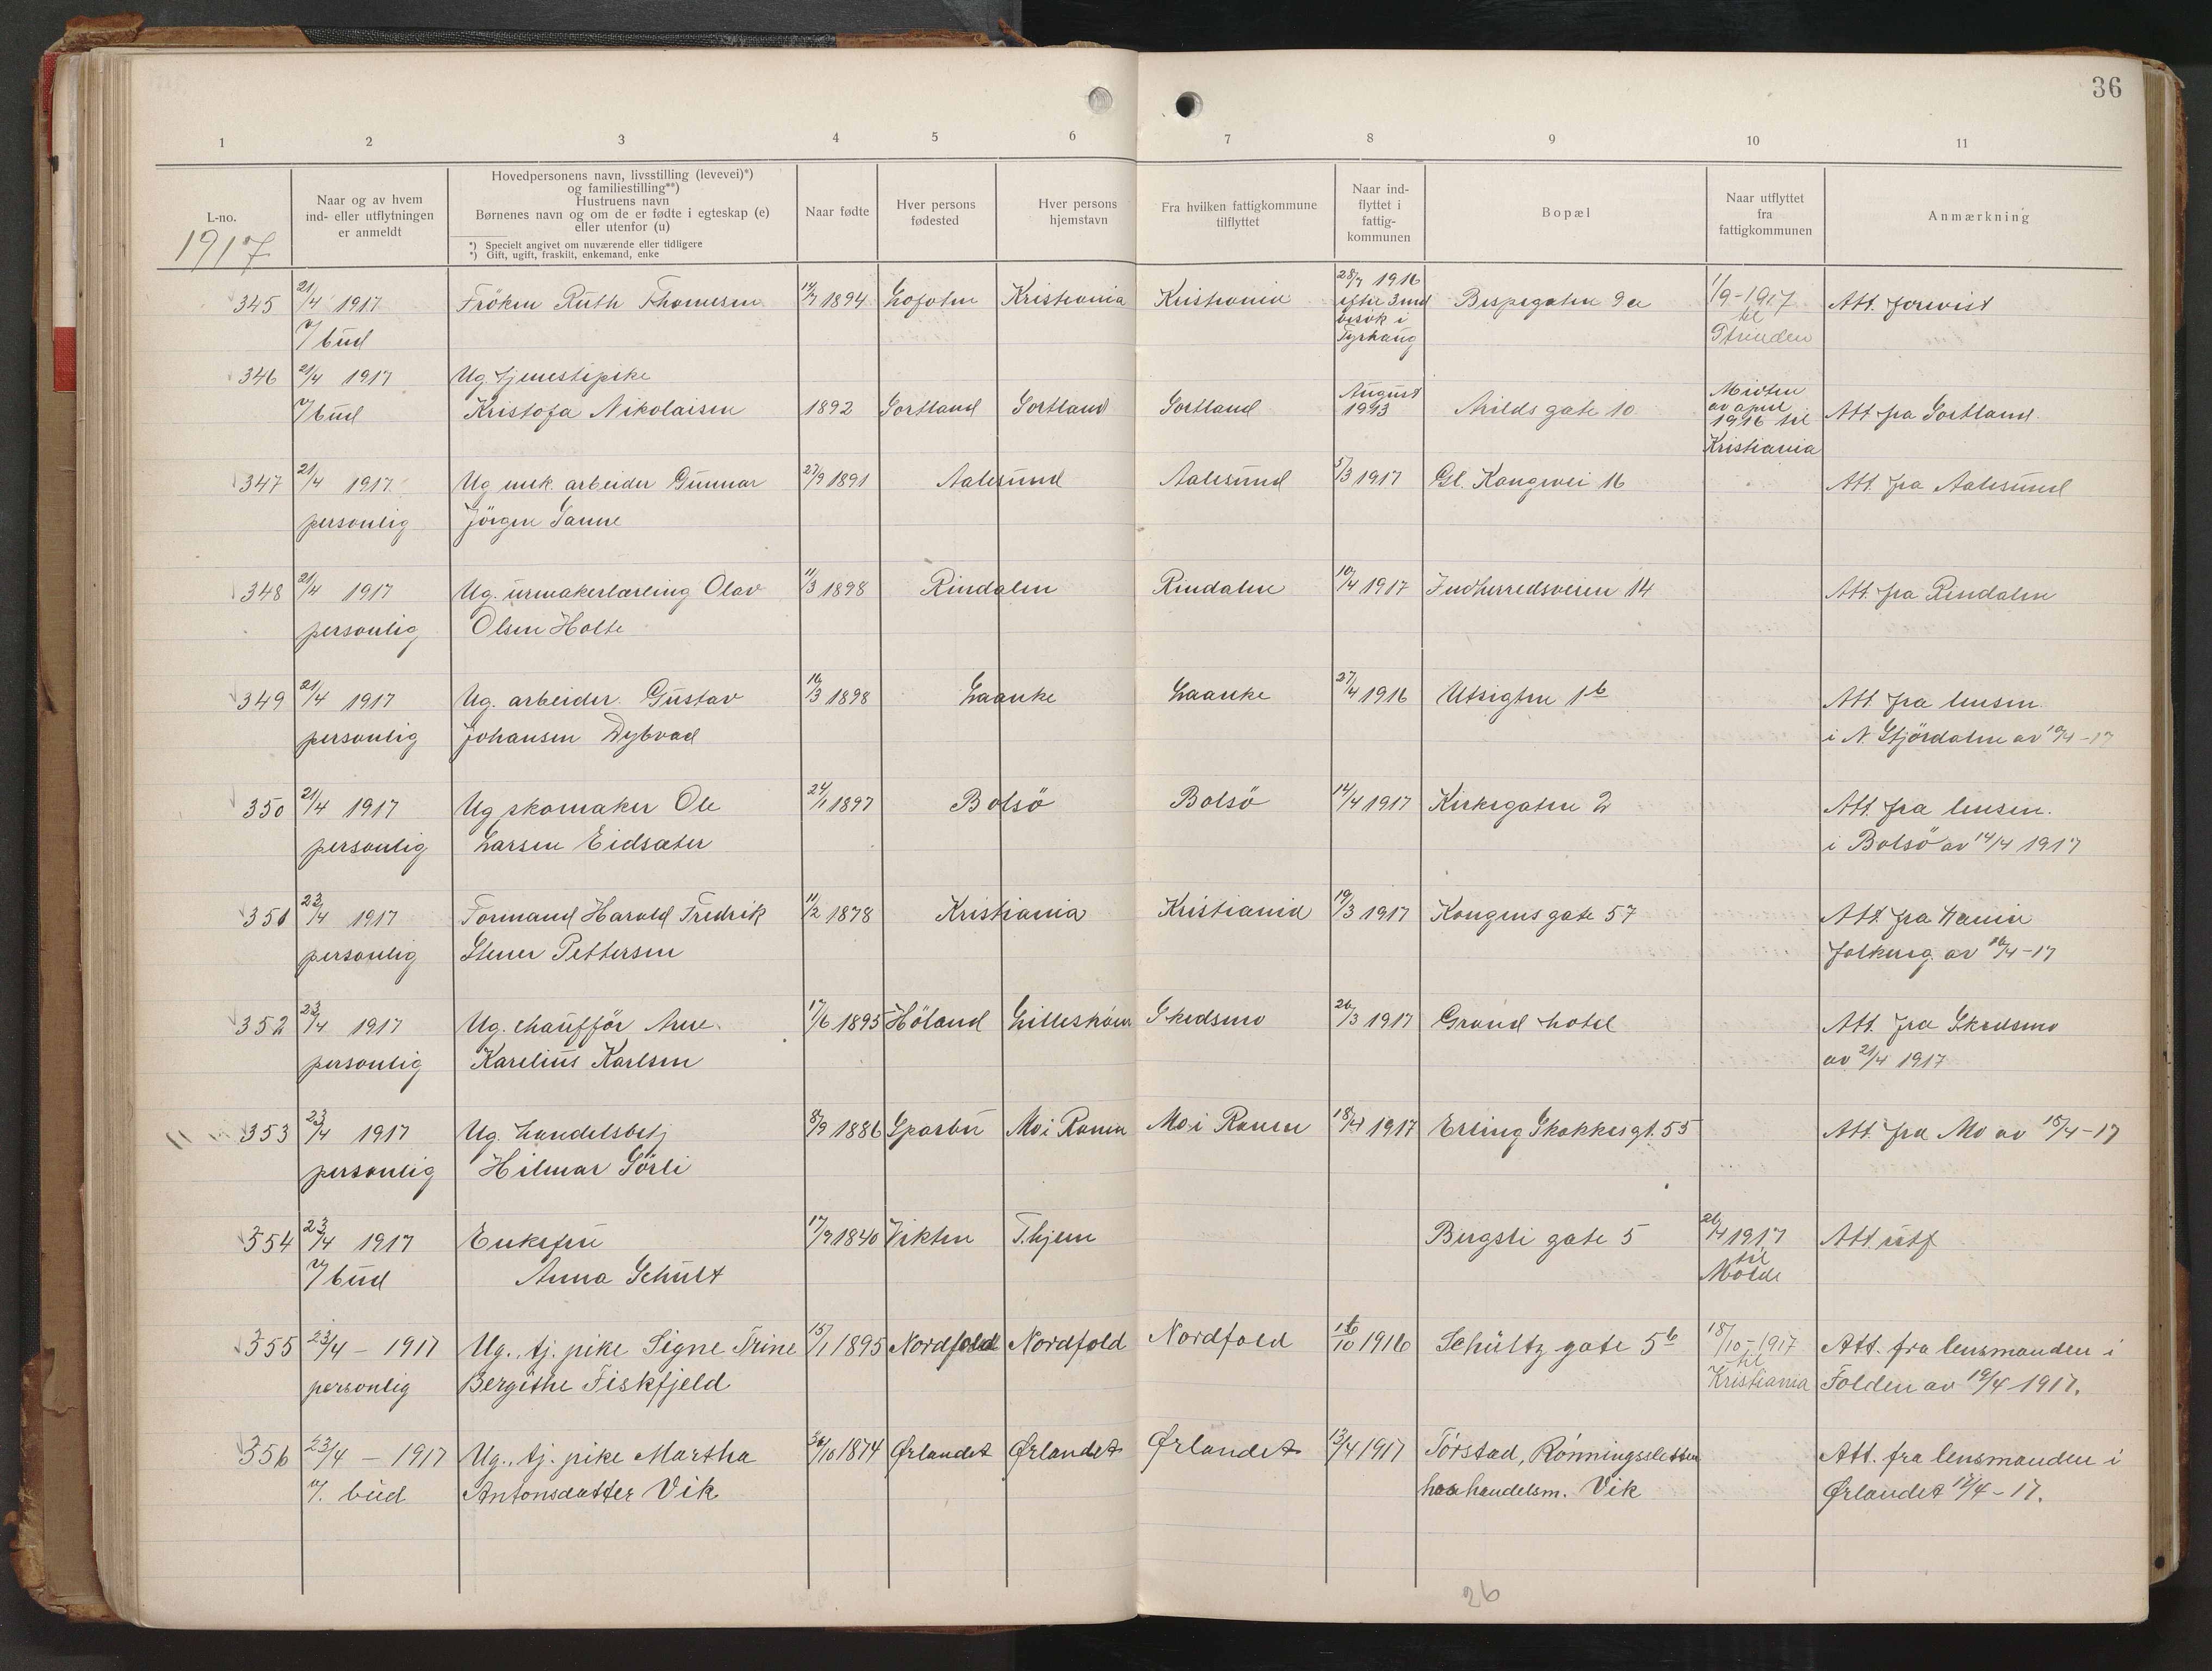 36
1 2 3 4 5 6 7 8 9 10 11
L-no.
1917
Naar og av hvem
ind- eller utflytningen
er anmeldt
Hovedpersonens navn, livsstilling (levevei)*)
og familiestilling**)
Hustruens navn
Børnenes navn og om de er fødte i egteskap (e)
eller utenfor (u)
*) Specielt angivet om nuværende eller tidligere
*) Gift, ugift, fraskilt, enkemand, enke
Naar fødte
Hver persons
fødested
Hver persons
hjemstavn
Fra hvilken fattigkommune
tilflyttet
Naar ind-
flyttet i
fattig-
kommunen
Bopæl
Naar utflyttet
fra
fattigkommunen
Anmærkning
345 21/4 1917 Fröken Ruth Thomesen 19/7 1894 Lofoten Kristiania Kristiania 28/7 1916 Bispegaten 9a 1/9-1917 Att. forevist
v/ bud efter 3 md besök i Tyrhaug til Strinden
346 21/4 1917 Ug tjenestepike
v/ bud Kristofa Nikolaisen 1892 Sortland Sortland Sortland August 1913 Arilds gate 10 Midten av april 1916 til Kristiania Att. fra Sortland.
347 21/4 1917 Ug mek. arbeider Gunnar 27/9 1891 Aalesund Aalesund 5/3 1917 Gl. Kongevei 16 Att. fra Aalesund
personlig Jörgen Sanne
348 21/4 1917 Ug. urmakerlærling Olav 11/3 1898 Rindalen Rindalen 10/4 1917 Indherredsveien 14 Att. fra Rindalen
personlig Olsen Holte
349 21/4 1917 Ug. arbeider Gustav 16/3 1898 Laanke Laanke 27/4 1916 Utsigten 1b Att. fra lensm.
personlig Johansen Dybvad i N. Stjördalen av 19/4-17
350 21/4 1917 Ug skomaker Ole 24/1 1897 Bolsö Bolsö 14/4 1917 Kirkegaten 2 Att. fra lensm.
personlig Larsen Eidsæter i Bolsö av 14/4 1917
351 23/4 1917 Formand Harald Fredrik 11/2 1878 Kristiania Kristiania 19/3 1917 Kongens gate 57 Att. fra
personlig Stener Pettersen folkereg. av 18/4-17
352 23/4 1917 Ug. chaufför Arne 17/6 1895 Höland Lilleström Skedsmo 26/3 1917 Grand hotel Att. fra Skedsmo
personlig Karelius Karlsen av 21/4 1917
353 23/4 1917 Ug. handelsbetj 8/9 1886 Sparbu Mo i Ranen Mo i Ranen 18/4 1917 Erling Skakkesgt. 55 Att. fra Mo av 15/4-17
personlig Hilmar Sörli
354 23/4 1917 Enkefru 17/9 1840 Vikten T.hjem Bergsli gate 5 26/4 1917 Att. utf
v/ bud Anna Schult til Molde
355 23/4 - 1917 Ug., tj. pike Signe Trine 15/1 1895 Nordfold Nordfold Nordfold 16/10 1916 Schültz gate 5b 18/10-1917 Att. fra lensmanden i
personlig Bergithe Fiskfjeld til Kristiania Folden av 19/4 1917.
356 23/4 - 1917 Ug., tj. pike Martha 26/10 1874 Ørlandet Ørlandet Ørlandet 13/4 1917 Torstad, Rönningssletten Att. fra lensmanden i
v/. bud Antonsdatter Vik hos handelsm. Vik Ørlandet 17/4-17.
26